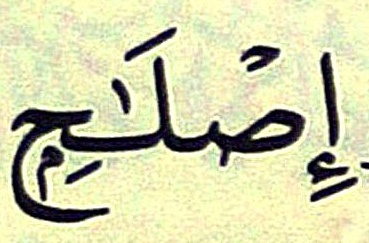 إِصْلَٰحِۭ